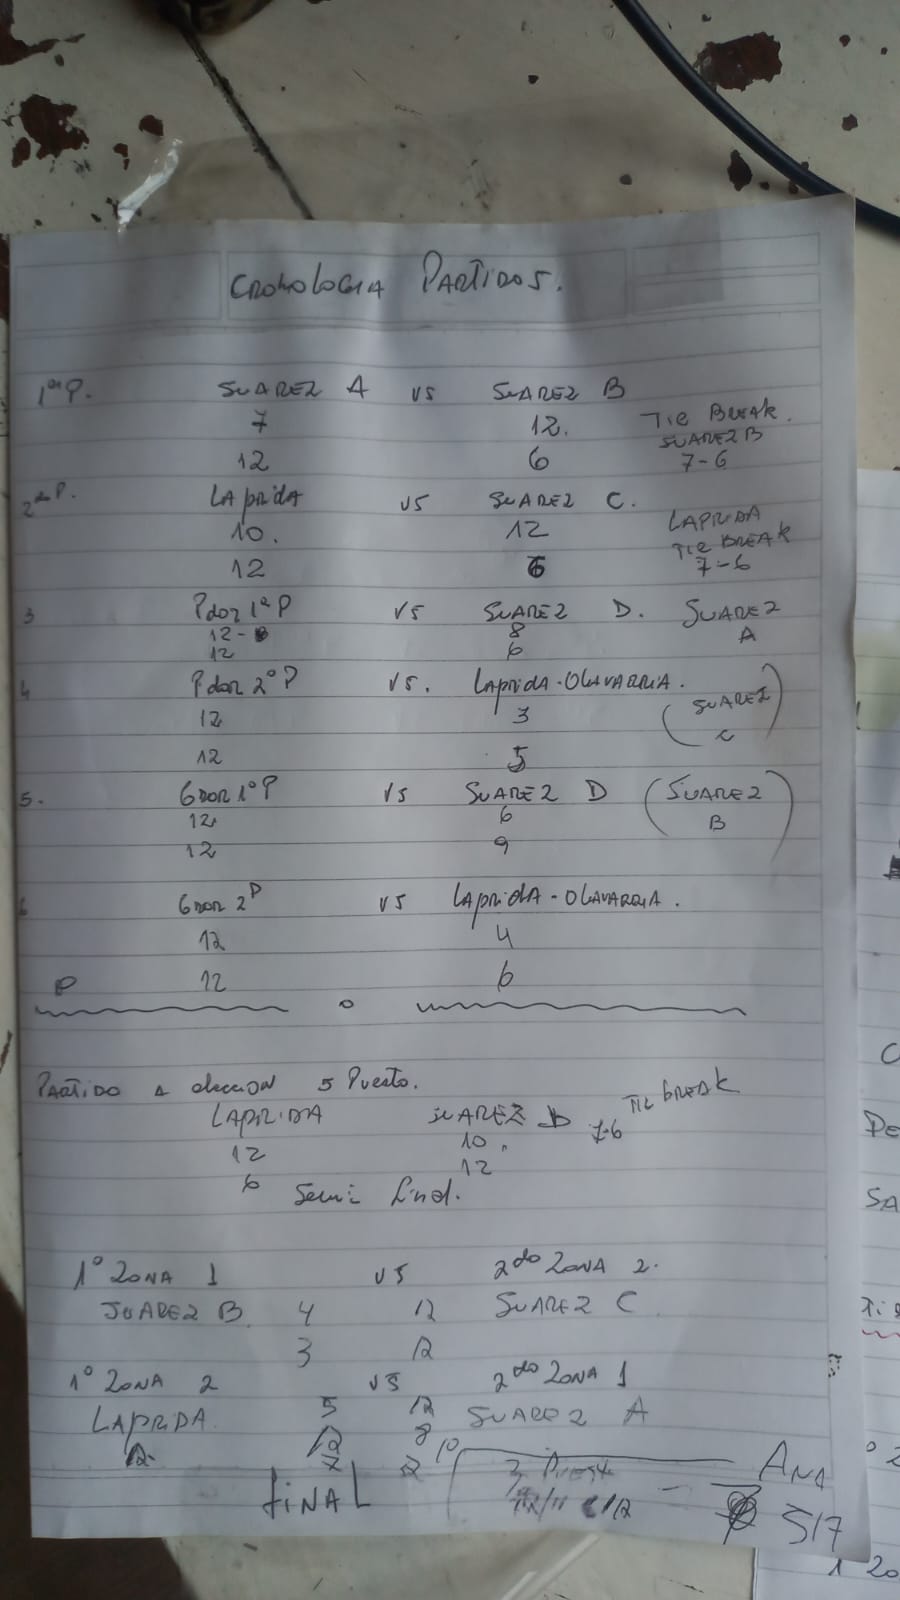 CRONOLOGIA PARTIDOS.
1er P. SUAREZ A VS SUAREZ B
7 12. TIE BREAK.
SUAREZ B
12 6 7-6
2do P. LAPRIDA VS SUAREZ C.
10. 12 LAPRIDA
TIE BREAK
12 6 7-6
3 Pdor 1º P VS SUAREZ D. SUAREZ
12- 8 A
12 6
4 Pdor 2º P VS. LAPRIDA-OLAVARRIA.
12 3 (SUAREZ
C)
12 5
5. Gdor 1º P VS SUAREZ D (SUAREZ
12 6 B)
12 9
6 Gdor 2 P VS LAPRIDA-OLAVARRIA.
12 4
P 12 6
PARTIDO A eleccion 5 Puesto.
LAPRIDA SUAREZ D 7-6 TIE BREAK
12 10.
6 12
Semi final.
1º ZONA 1 VS 2do ZONA 2.
SUAREZ B 4 12 SUAREZ C
3 12
1º ZONA 2 VS 2do ZONA 1
LAPRIDA 5 12 SUAREZ A
12. 12 8
7
FINAL 3 Puesto
ANA
517